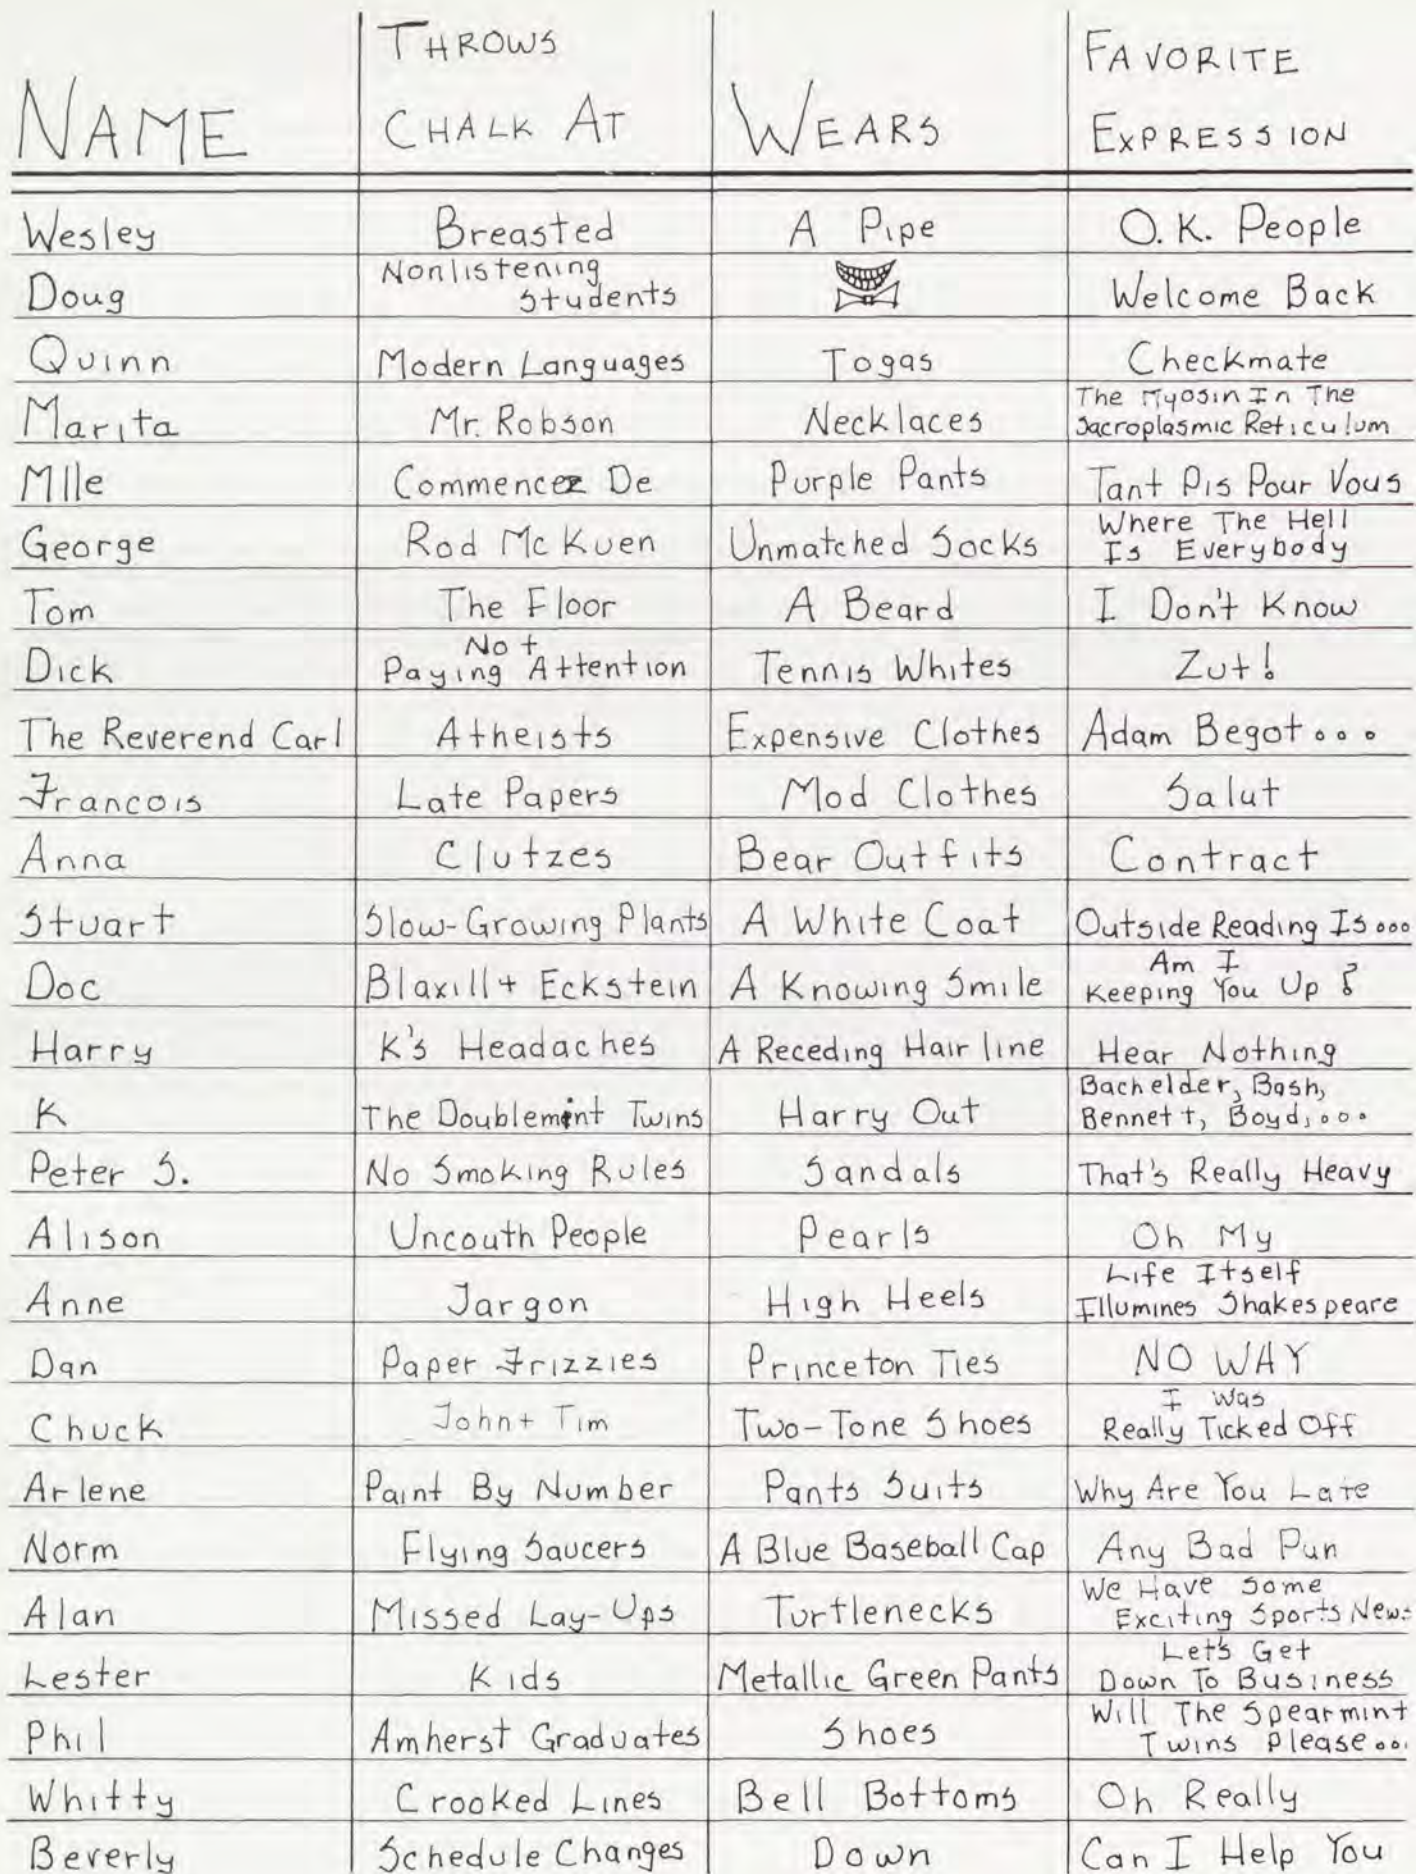 NAME THROWS CHALK AT WEARS FAVORITE EXPRESSION
Wesley Breasted A Pipe O.K. People
Doug Nonlistening Students Welcome Back
Quinn Modern Languages Togas Checkmate
Marita Mr. Robson Necklaces The Myosin In The Sacroplasmic Reticulum
Mlle Commencez De Purple Pants Tant Pis Pour Vous
George Rod McKuen Unmatched Socks Where The Hell Is Everybody
Tom The Floor A Beard I Don't Know
Dick Not Paying Attention Tennis Whites Zut!
The Reverend Carl Atheists Expensive Clothes Adam Begot...
Francois Late Papers Mod Clothes Salut
Anna Clutzes Bear Outfits Contract
Stuart Slow-Growing Plants A White Coat Outside Reading Is...
Doc Blaxill + Eckstein A Knowing Smile Am I Keeping You Up?
Harry K's Headaches A Receding Hairline Hear Nothing
K The Doublemint Twins Harry Out Bachelder, Bash, Bennett, Boyd,...
Peter S. No Smoking Rules Sandals That's Really Heavy
Alison Uncouth People Pearls Oh My
Anne Jargon High Heels Life Itself Illumines Shakespeare
Dan Paper Frizzies Princeton Ties NO WAY
Chuck John + Tim Two-Tone Shoes I Was Really Ticked Off
Arlene Paint By Number Pants Suits Why Are You Late
Norm Flying Saucers A Blue Baseball Cap Any Bad Pun
Alan Missed Lay-Ups Turtlenecks We Have Some Exciting Sports News
Lester Kids Metallic Green Pants Let's Get Down To Business
Phil Amherst Graduates Shoes Will The Spearmint Twins Please...
Whitty Crooked Lines Bell Bottoms Oh Really
Beverly Schedule Changes Down Can I Help You